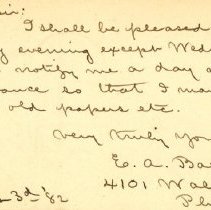 Sir:
I shall be pleased
evening except Wed
notify me a day
so that I may
old papers etc.
Very truly you
E. A. Ba
4101 Wal
3rd '82